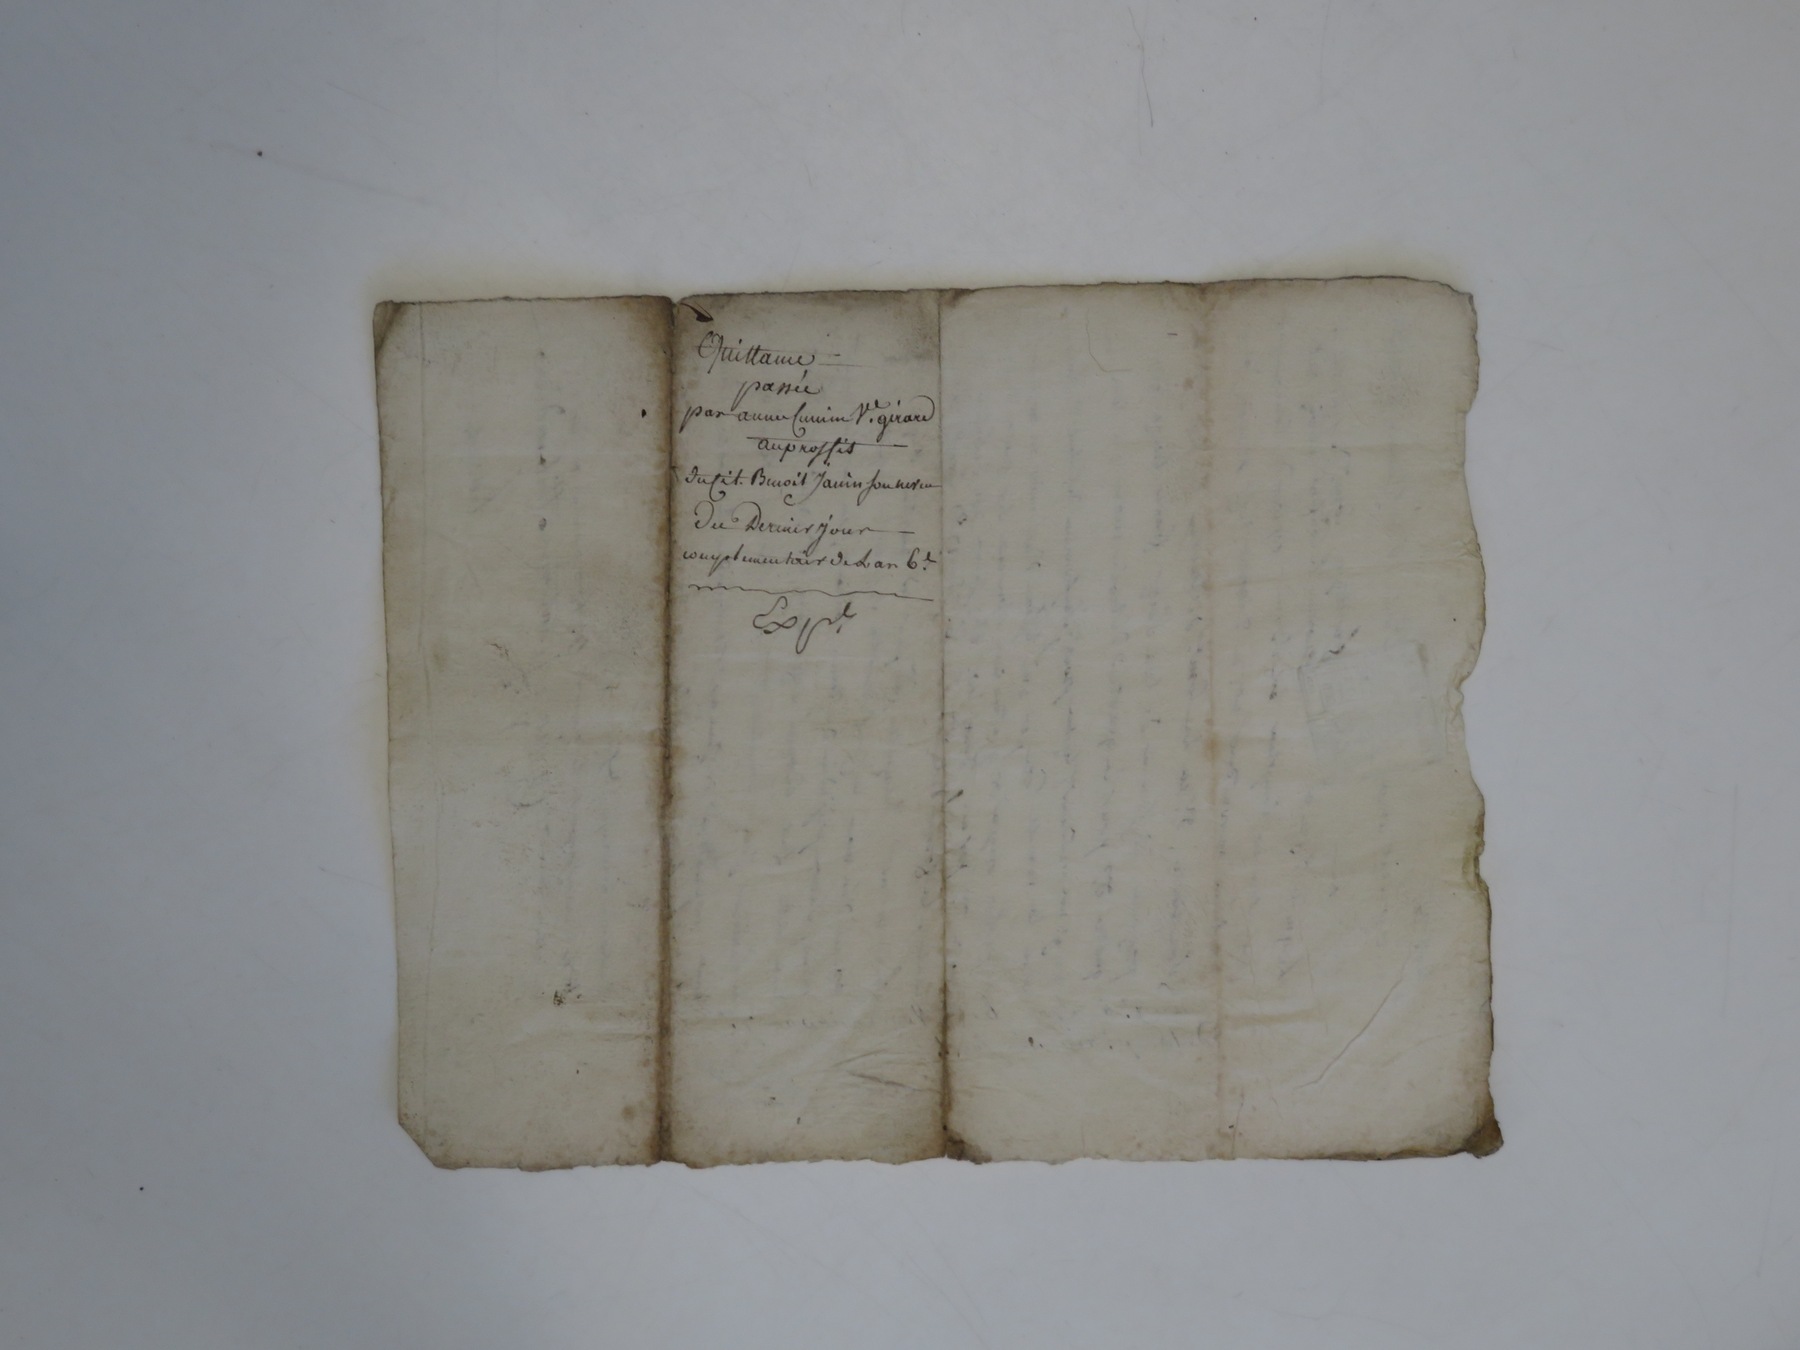 Quittance
passée
par anne Cunin V.e gérard
au proffit
du Cit. Benoit Janin son neveu
Du Dernier jour
complementair de Lan 6.e
Exp.de